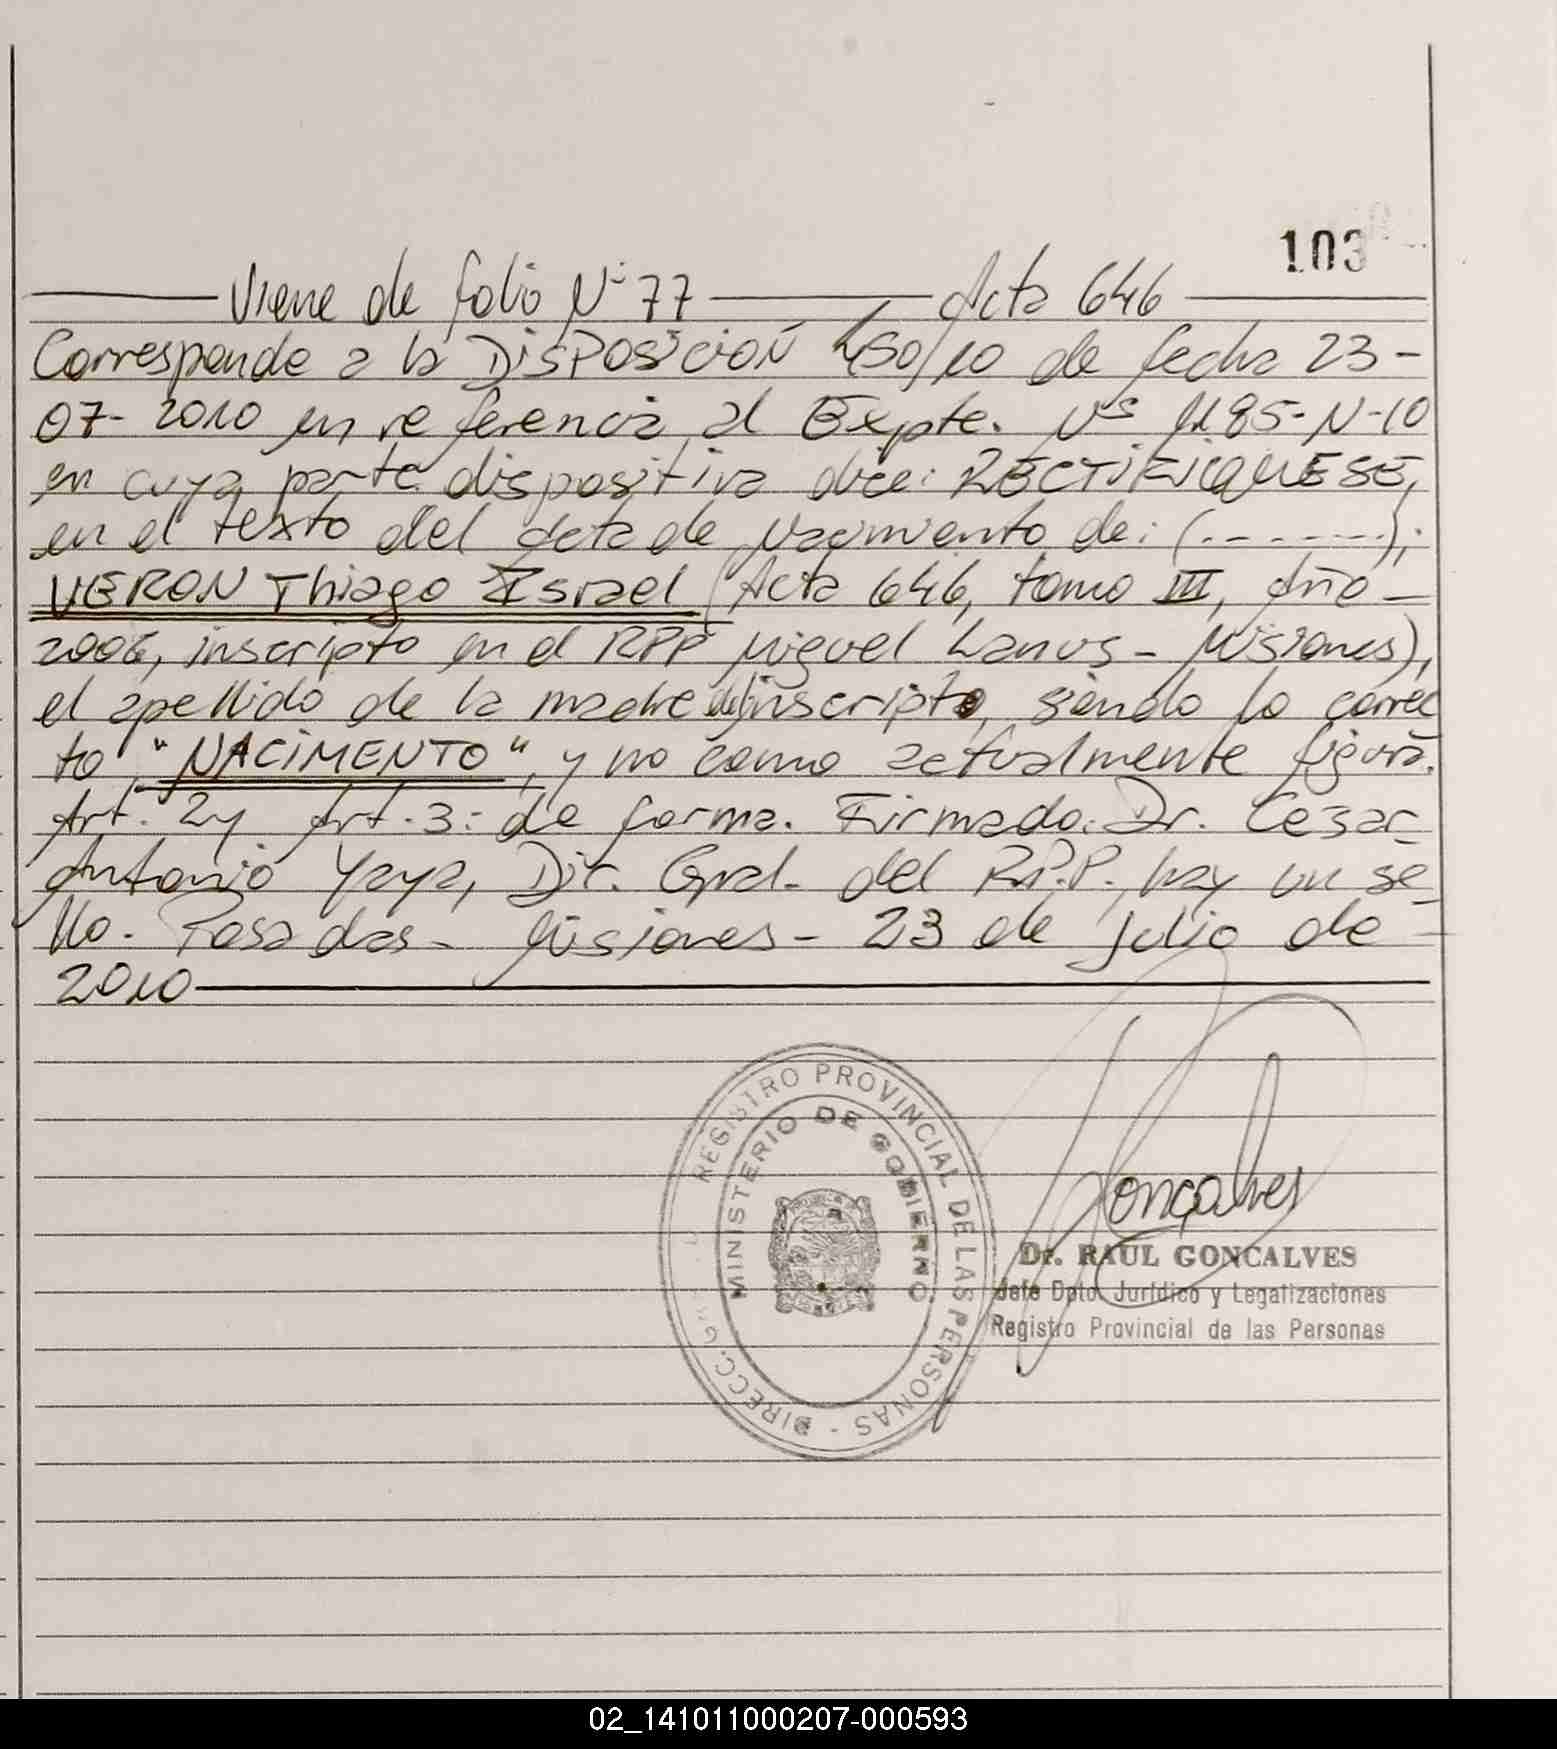 103
Viene de folio Nº 77 Acta 646
Corresponde a la DISPOSICION 450/10 de fecha 23-
07-2010 en referencia al Expte. Nº 1185-N-10
en cuya parte dispositiva dice: RECTIFIQUESE,
en el texto del Acta de Nacimiento de: (.......);
VERON Thiago Israel (Acta 646, tomo III, Año
2006, inscripto en el RPP Miguel Lanus - Misiones),
el apellido de la madre del inscripto, siendo lo correc
to "NACIMENTO", y no como actualmente figura.
Art. 2 y Art. 3: de forma. Firmado: Dr. Cesar
Antonio Yaya, Dir. Gral. del R.P.P., hay un se
llo. Posadas - Misiones - 23 de Julio de
2010
REGISTRO PROVINCIAL DE LAS PERSONAS - DIRECC. GRAL.
MINISTERIO DE GOBIERNO
Goncalves
Dr. RAUL GONCALVES
Jefe Dpto. Jurídico y Legalizaciones
Registro Provincial de las Personas
02_141011000207-000593